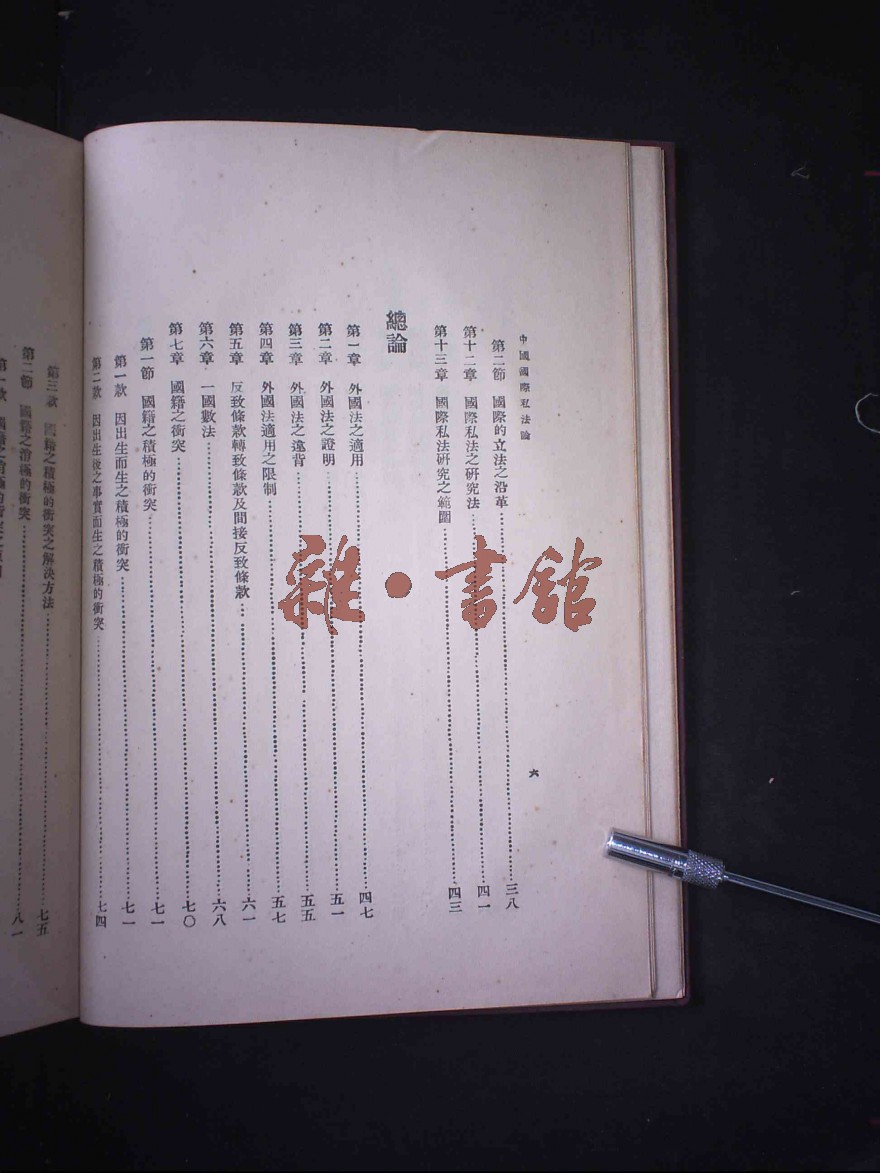 中國國際私法論
六
第二節　國際的立法之沿革……三八
第十二章　國際私法之研究法……四一
第十三章　國際私法研究之範圍……四三
總論
第一章　外國法之適用……四七
第二章　外國法之證明……五一
第三章　外國法之違背……五五
第四章　外國法適用之限制……五七
第五章　反致條款轉致條款及間接反致條款……六一
第六章　一國數法……六八
第七章　國籍之衝突……七〇
第一節　國籍之積極的衝突……七一
第一款　因出生而生之積極的衝突……七一
第二款　因出生後之事實而生之積極的衝突……七四
第三款　國籍之積極的衝突之解決方法……七五
第二節　國籍之消極的衝突……八一
雜·書館